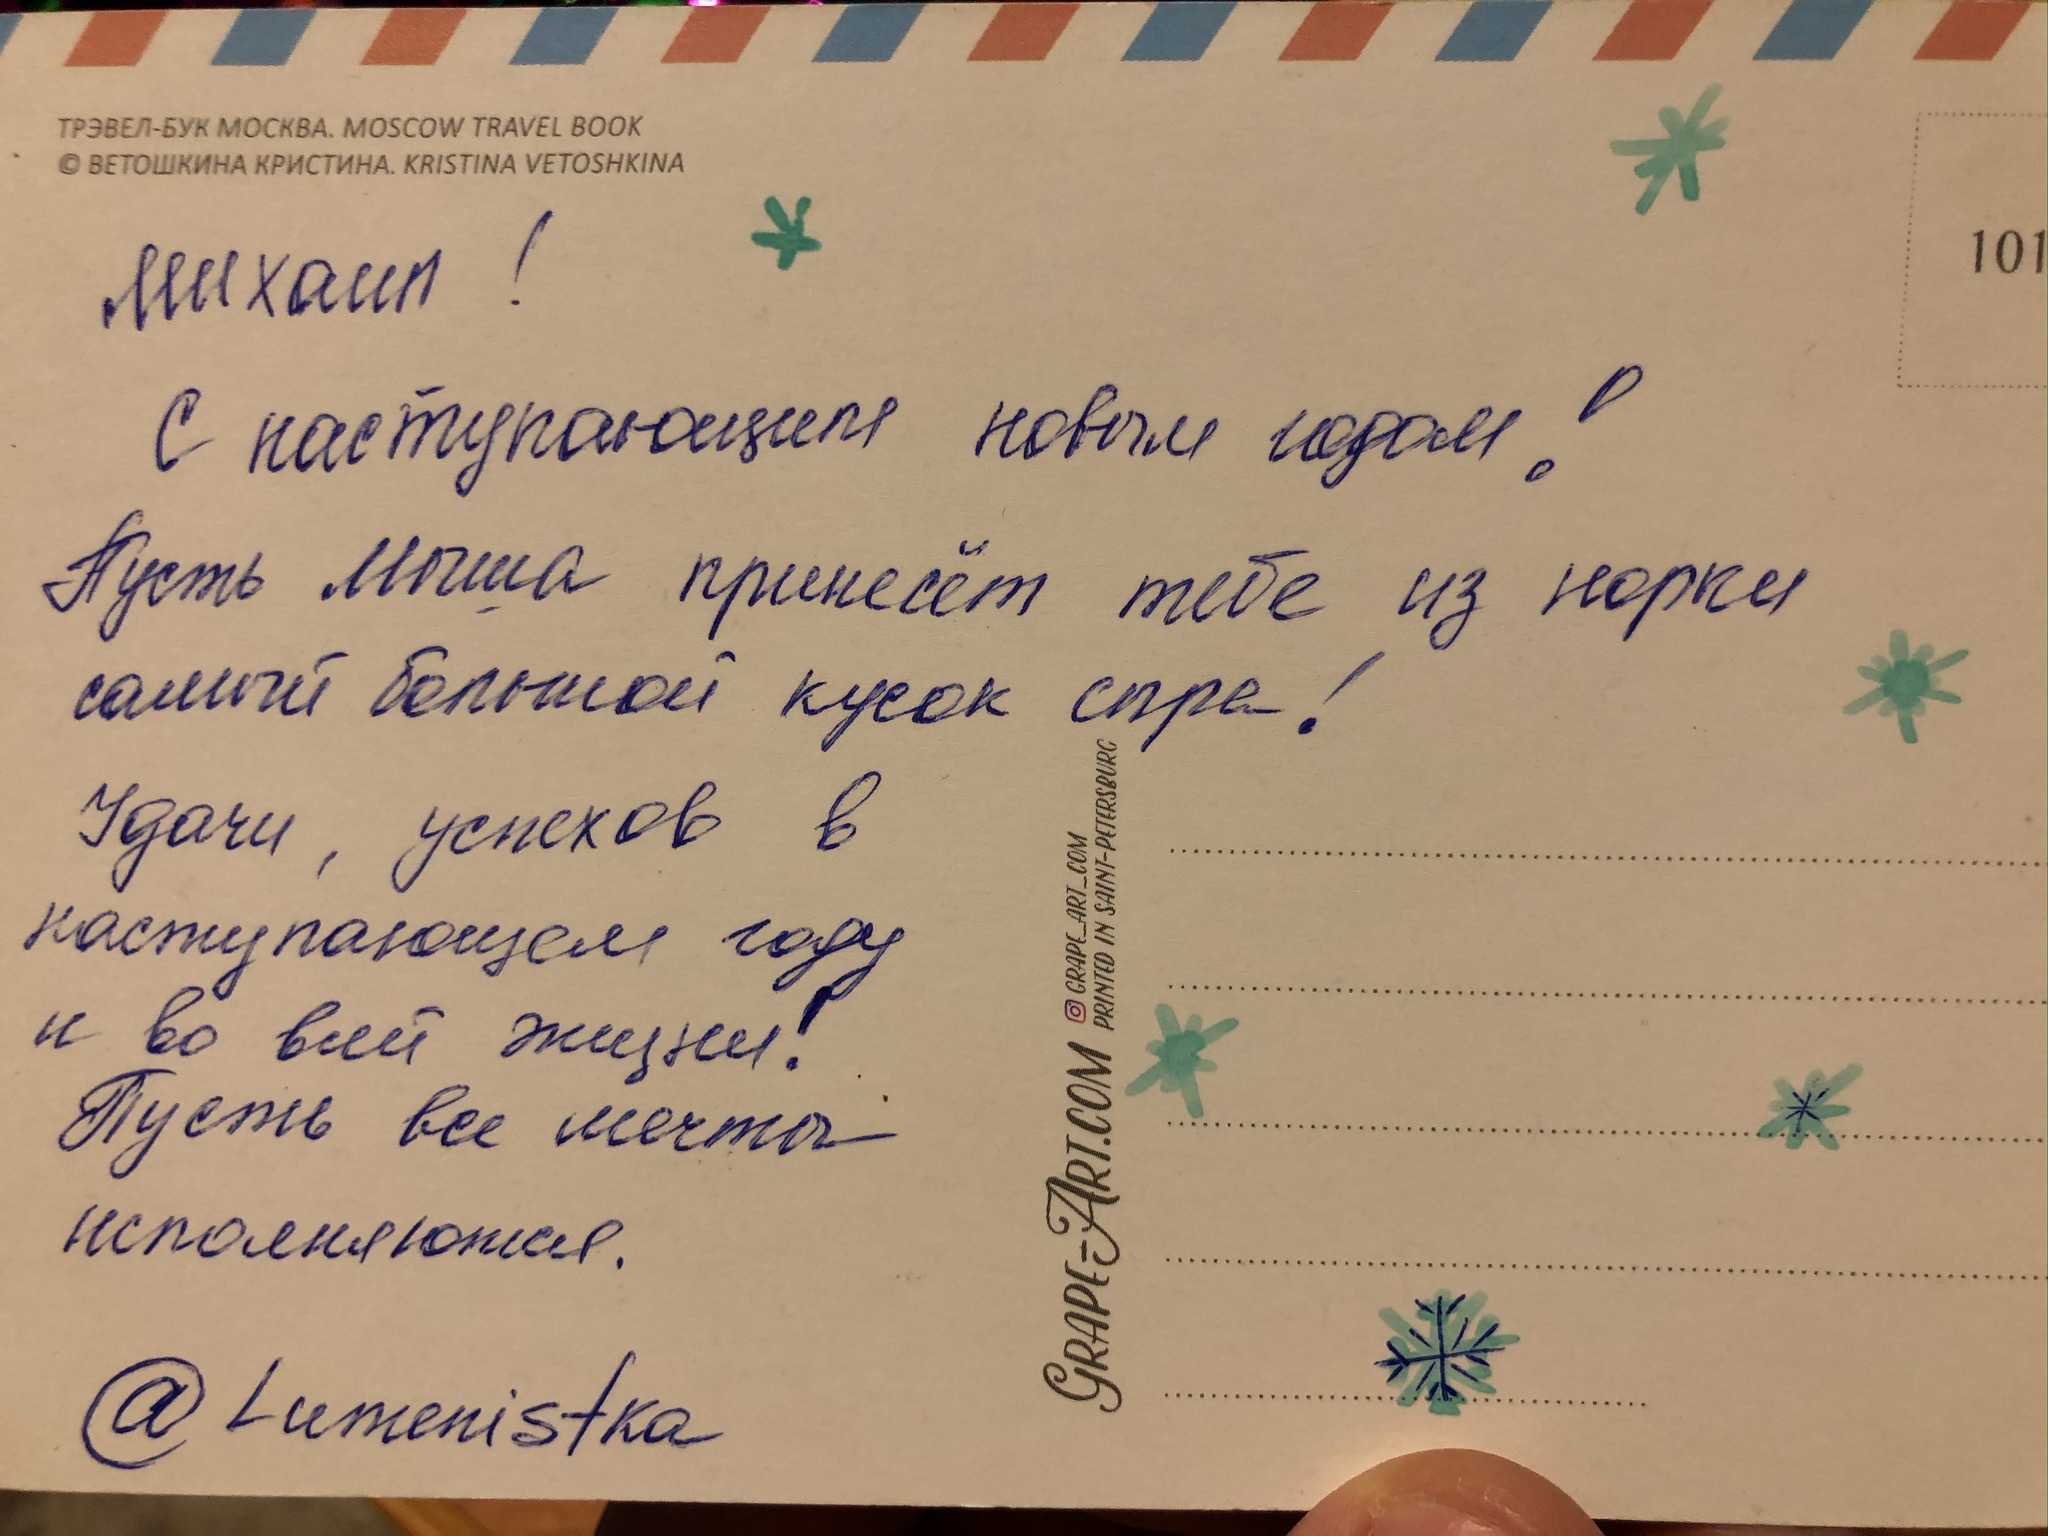 ТРЭВЕЛ-БУК МОСКВА. MOSCOW TRAVEL BOOK
© ВЕТОШКИНА КРИСТИНА. KRISTINA VETOSHKINA
101
Михаил!
С наступающим новым годом!
Пусть Мыша принесёт тебе из норки
самый большой кусок сыра!
Удачи, успехов в
наступающем году
и во всей жизни!
Пусть все мечты
исполняются.
@Lumenistka
GRAPE-ART.COM
GRAPE_ART_COM
PRINTED IN SAINT-PETERSBURG